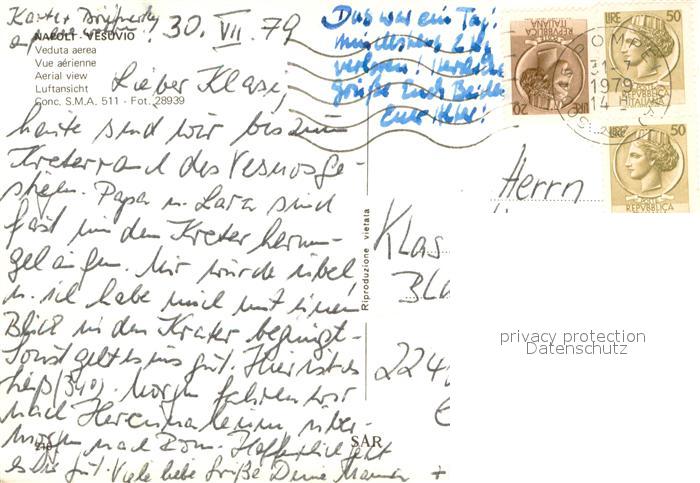 Karte + Briefmarken
30. VII. 79
NAPOLI - VESUVIO
Veduta aerea
Vue aérienne
Aerial view
Luftansicht
Conc. S.M.A. 511 - Fot. 28939
Lieber Klasi,
heute sind wir bis zum
Kraterrand des Vesuvs ge-
stiegen. Papa u. Lara sind
fast um den Krater herum-
gelaufen. Mir wurde übel,
u. ich habe mich mit einem
Blick in den Krater begnügt.
Sonst geht es uns gut. Hier ist es
heiß (34°). Morgen fahren wir
nach Herculaneum über-
morgen nach Rom. Hoffentlich geht
es Dir gut. Viele liebe Grüße Deine Mama +
210
SAR
Das war ein Tag!
mindestens 2 kg
verloren! Herzliche
Grüße Euch Beiden
Eure
Riproduzione vietata
LIRE 20
ITALIANA
LIRE 50
REPVBBLICA
ITALIANA
LIRE 50
REPVBBLICA
POMPEI
1979
14
Herrn
Klas
224
privacy protection
Datenschutz